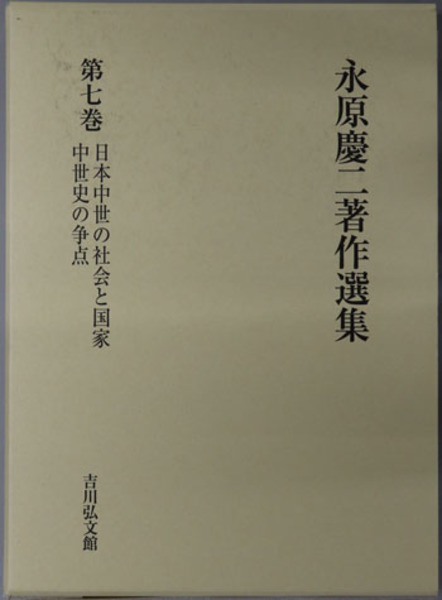 永原慶二著作選集
第七巻
日本中世の社会と国家
中世史の争点
吉川弘文館